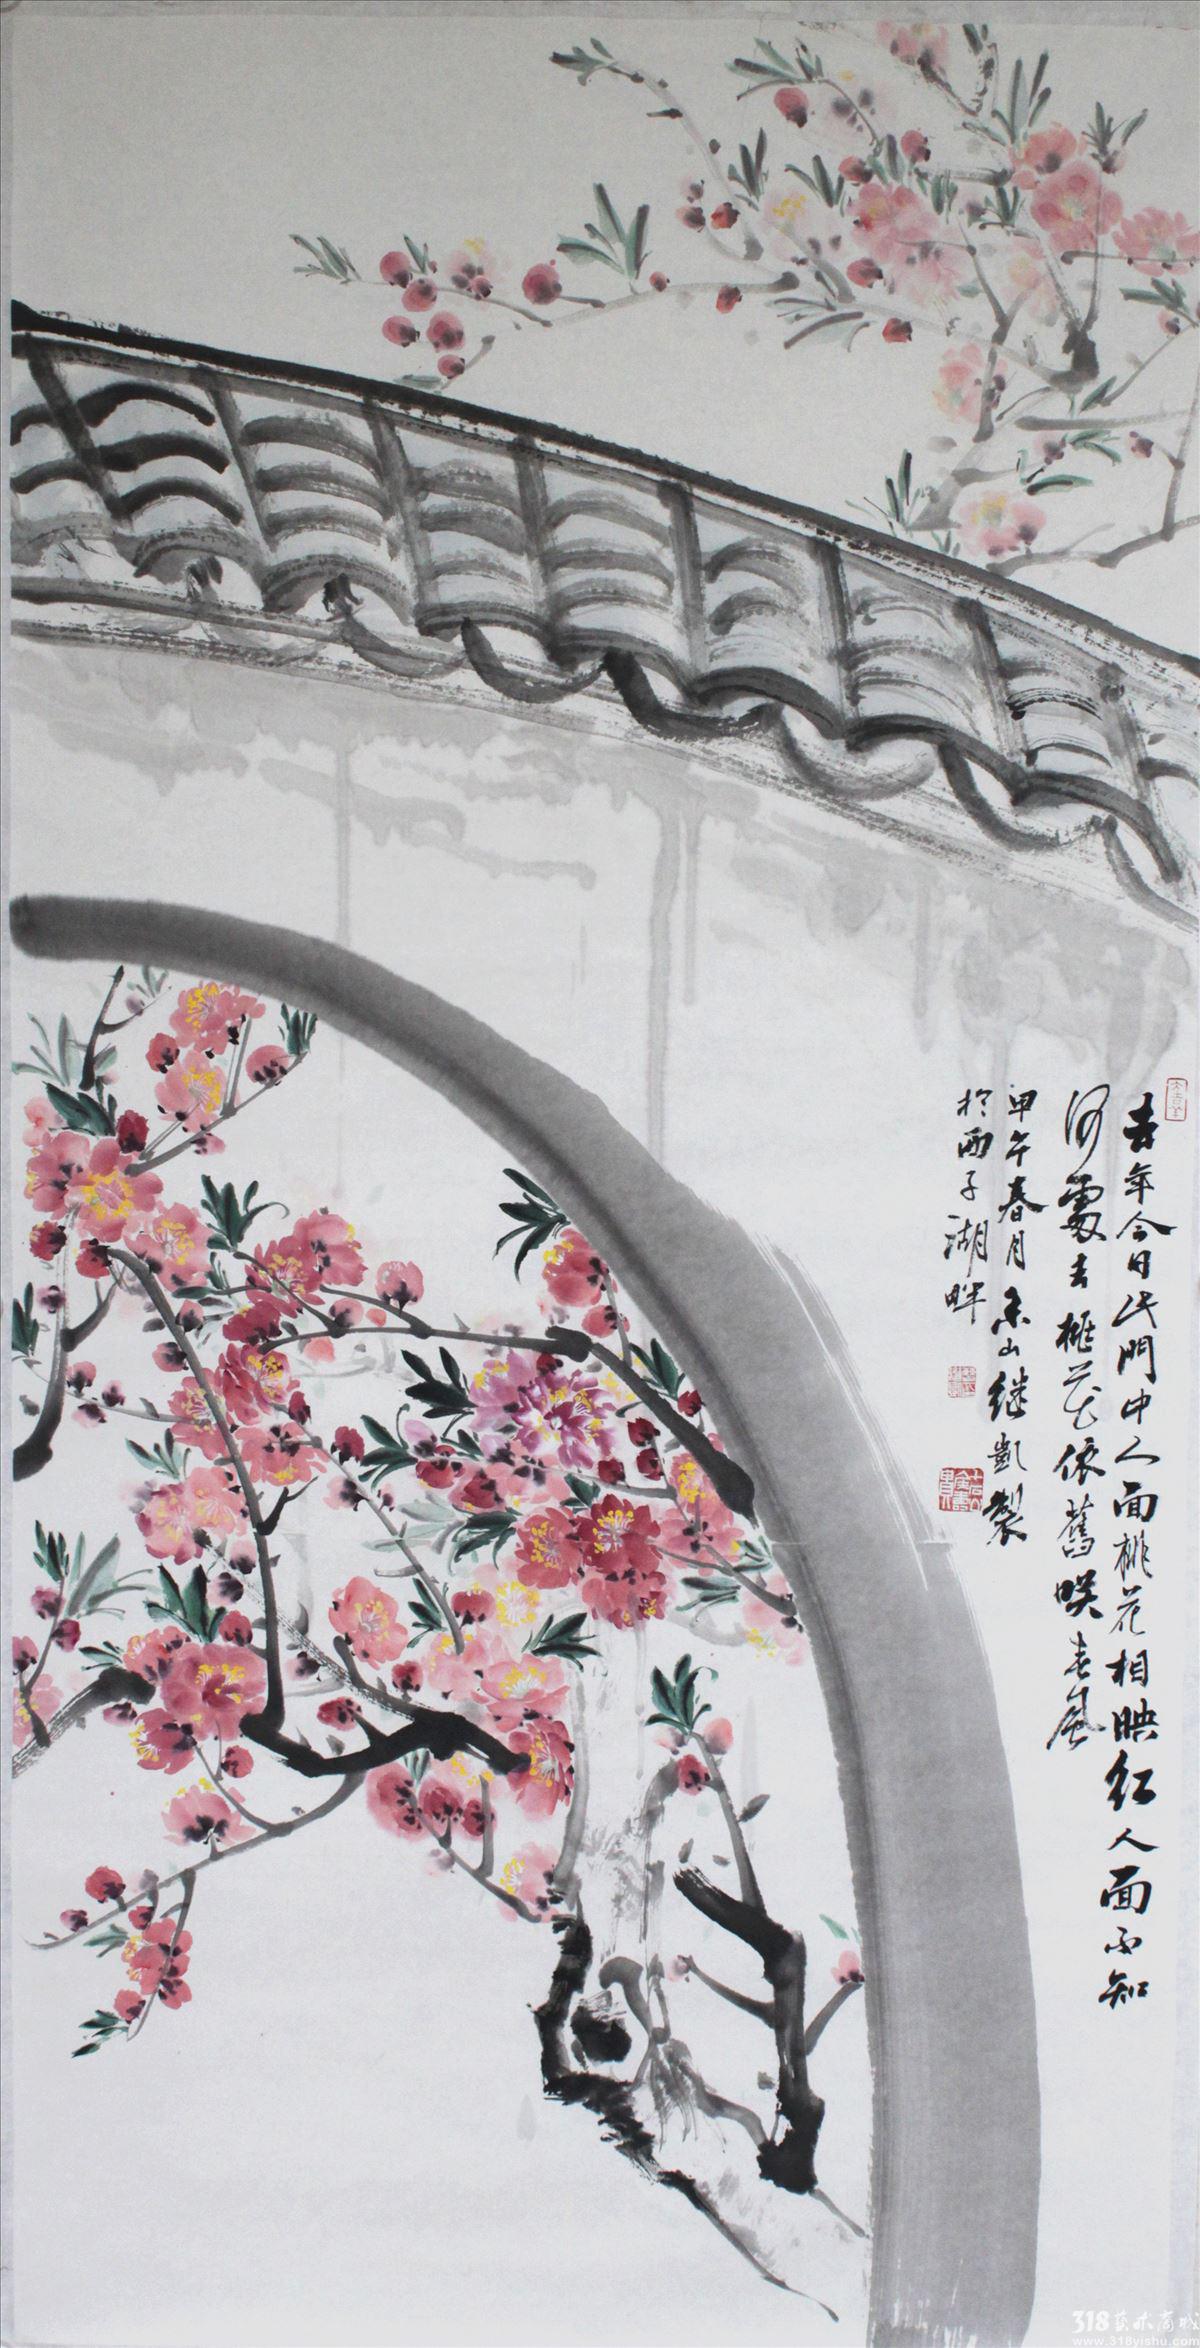 去年今日此門中人面桃花相映红人面不知
何處去桃花依舊咲春风
甲午春月 山继凱製
於西子湖畔
318艺术商城
www.318yishu.com